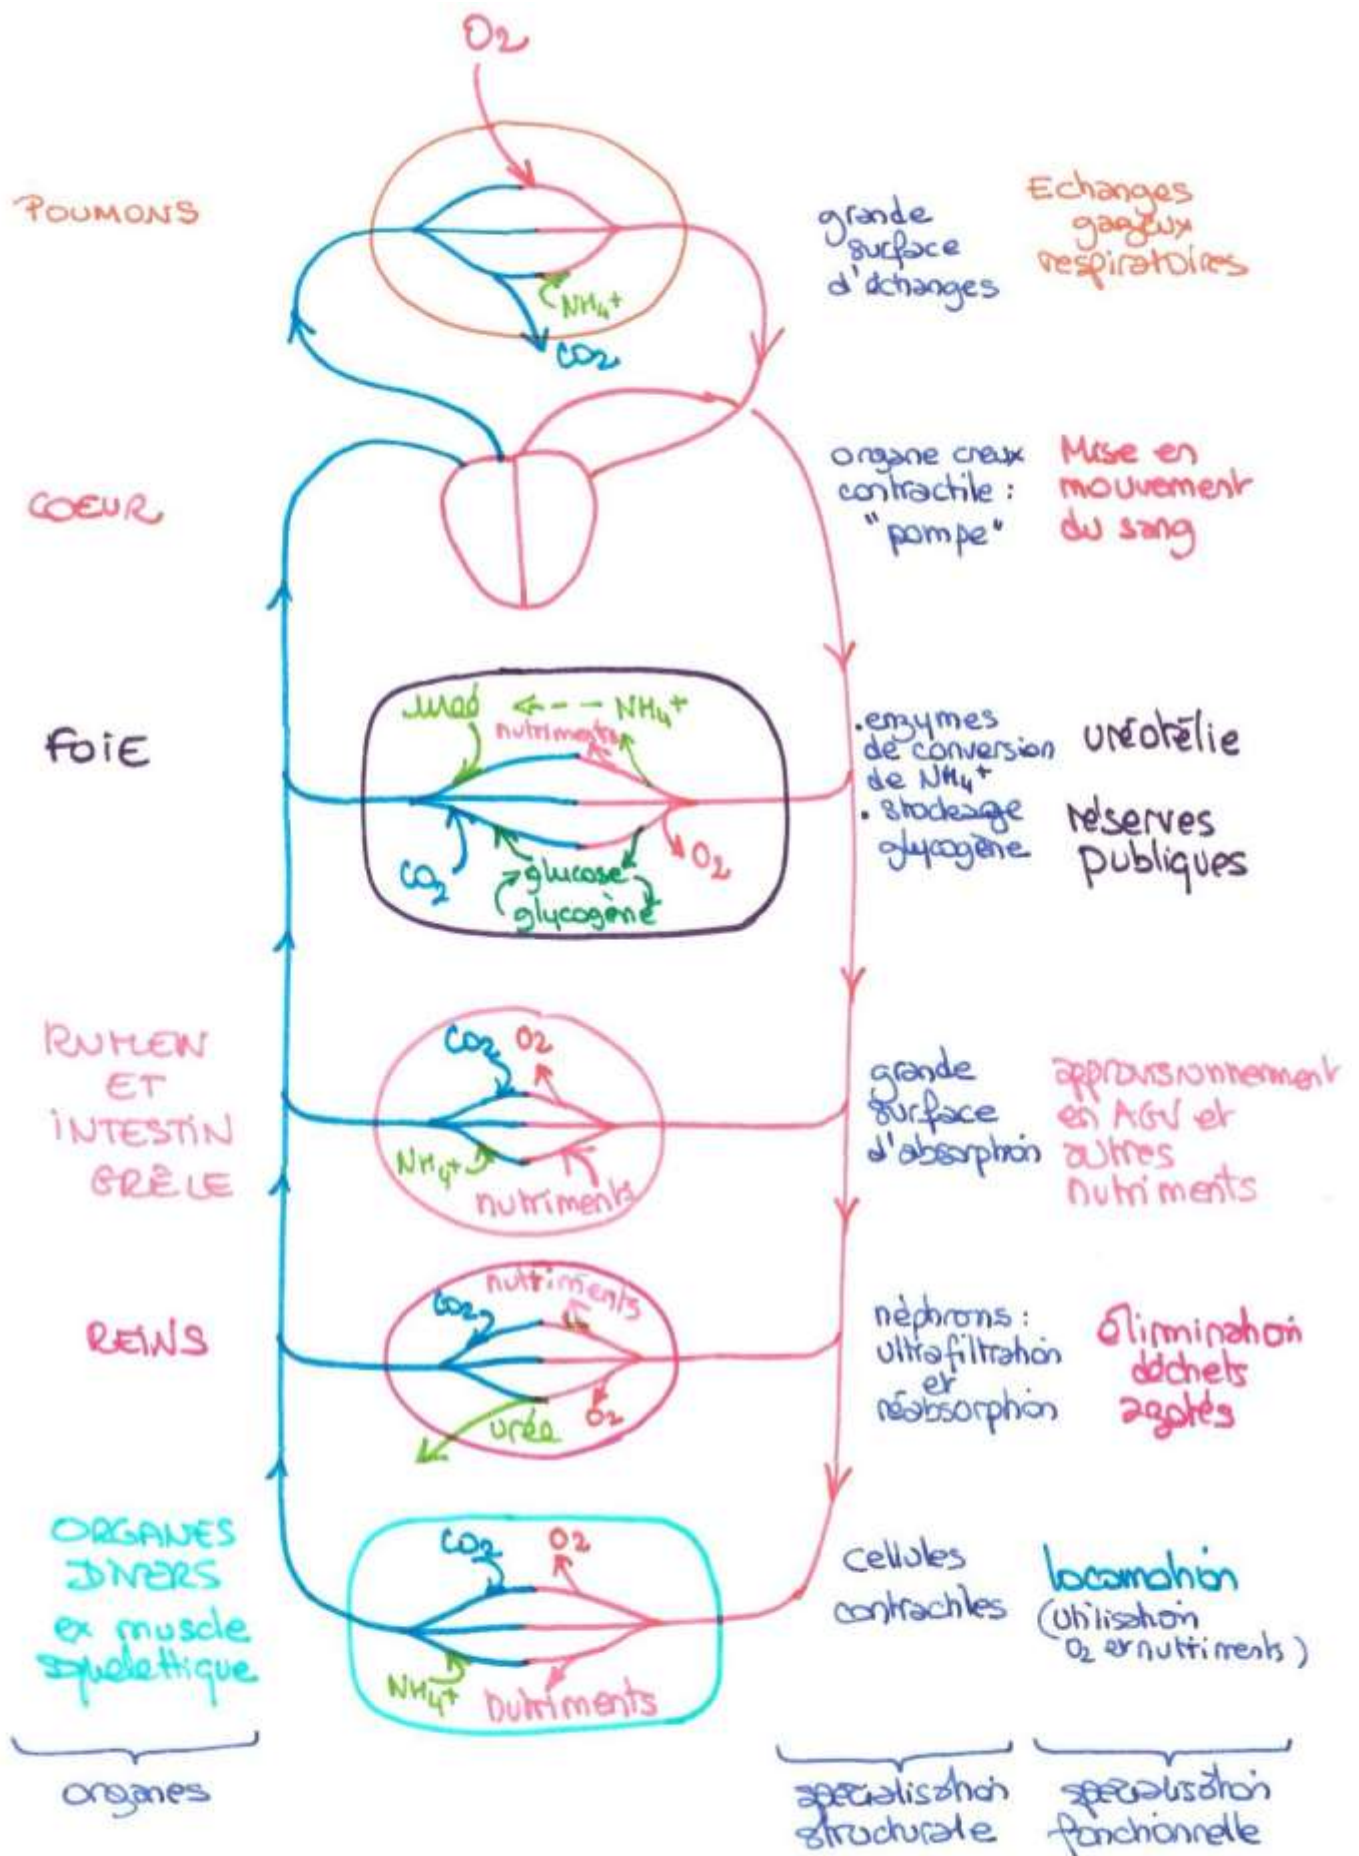 O2
POUMONS
NH4+
CO2
grande
surface
d'échanges
Echanges
gazeux
respiratoires
COEUR
organe creux
contractile :
"pompe"
Mise en
mouvement
du sang
FOIE
urée
NH4+
nutriments
CO2
glucose
glycogène
O2
. enzymes
de conversion
de NH4+
. stockage
glycogène
uréotélie
réserves
publiques
RUMEN
ET
INTESTIN
GRÊLE
CO2
O2
NH4+
nutriments
grande
surface
d'absorption
approvisionnement
en AGV et
autres
nutriments
REINS
nutriments
CO2
urée
O2
néphrons :
ultrafiltration
et
réabsorption
élimination
déchets
azotés
ORGANES
DIVERS
ex muscle
squelettique
CO2
O2
NH4+
nutriments
cellules
contractiles
locomotion
(utilisation
O2 et nutriments)
organes
spécialisation
structurale
spécialisation
fonctionnelle